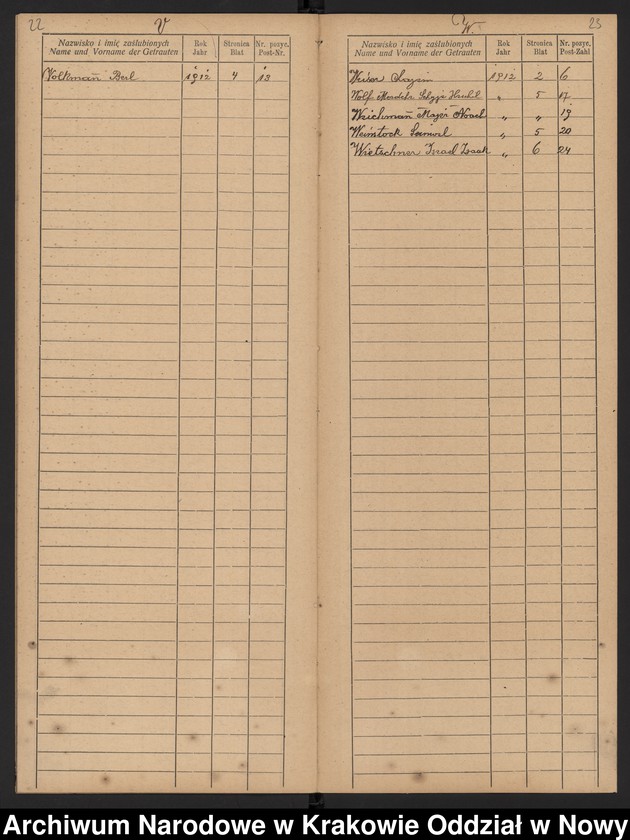 22
V
Nazwisko i imię zaślubionych
Name und Vorname der Getrauten
Rok
Jahr
Stronica
Blatt
Nr. pozyc.
Post-Nr.
Volkman̄ Berl 1912 4 13
23
W.
Nazwisko i imię zaślubionych
Name und Vorname der Getrauten
Rok
Jahr
Stronica
Blatt
Nr. pozyc.
Post-Zahl
1912 2 6
Wolf Mordche Hersch „ 5 17
Weichman̄ Majer Noach „ „ 19
Weinstock Samuel „ 5 20
Wietschner Izrael Izaak „ 6 24
Archiwum Narodowe w Krakowie Oddział w Nowy